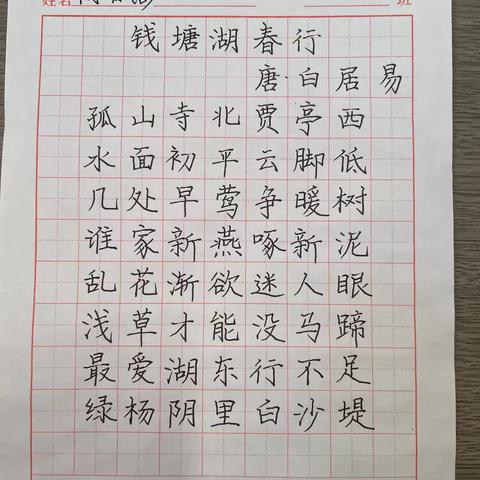 姓名 班
钱塘湖春行
唐·白居易
孤山寺北贾亭西
水面初平云脚低
几处早莺争暖树
谁家新燕啄新泥
乱花渐欲迷人眼
浅草才能没马蹄
最爱湖东行不足
绿杨阴里白沙堤